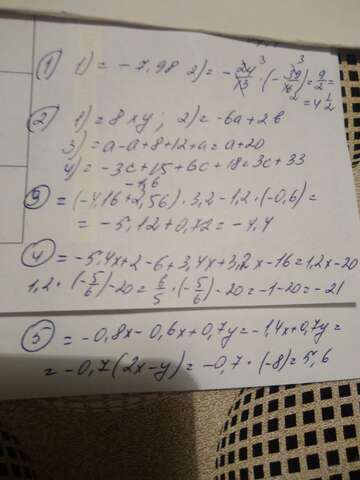 ① 1) = -7,98 2) = -24/13 · (-39/16) = 9/2 =
= 4 1/2
② 1) = 8xy; 2) = -6a + 2b
3) = a - a + 8 + 12 + a = a + 20
4) = -3c + 15 + 6c + 18 = 3c + 33
-1,6
③ = (-4,16 + 2,56) · 3,2 - 1,2 · (-0,6) =
= -5,12 + 0,72 = -4,4
④ = -5,4x + 2 - 6 + 3,4x + 3,2x - 16 = 1,2x - 20
1,2 · (-5/6) - 20 = 6/5 · (-5/6) - 20 = -1 - 20 = -21
⑤ = -0,8x - 0,6x + 0,7y = -1,4x + 0,7y =
= -0,7(2x - y) = -0,7 · (-8) = 5,6